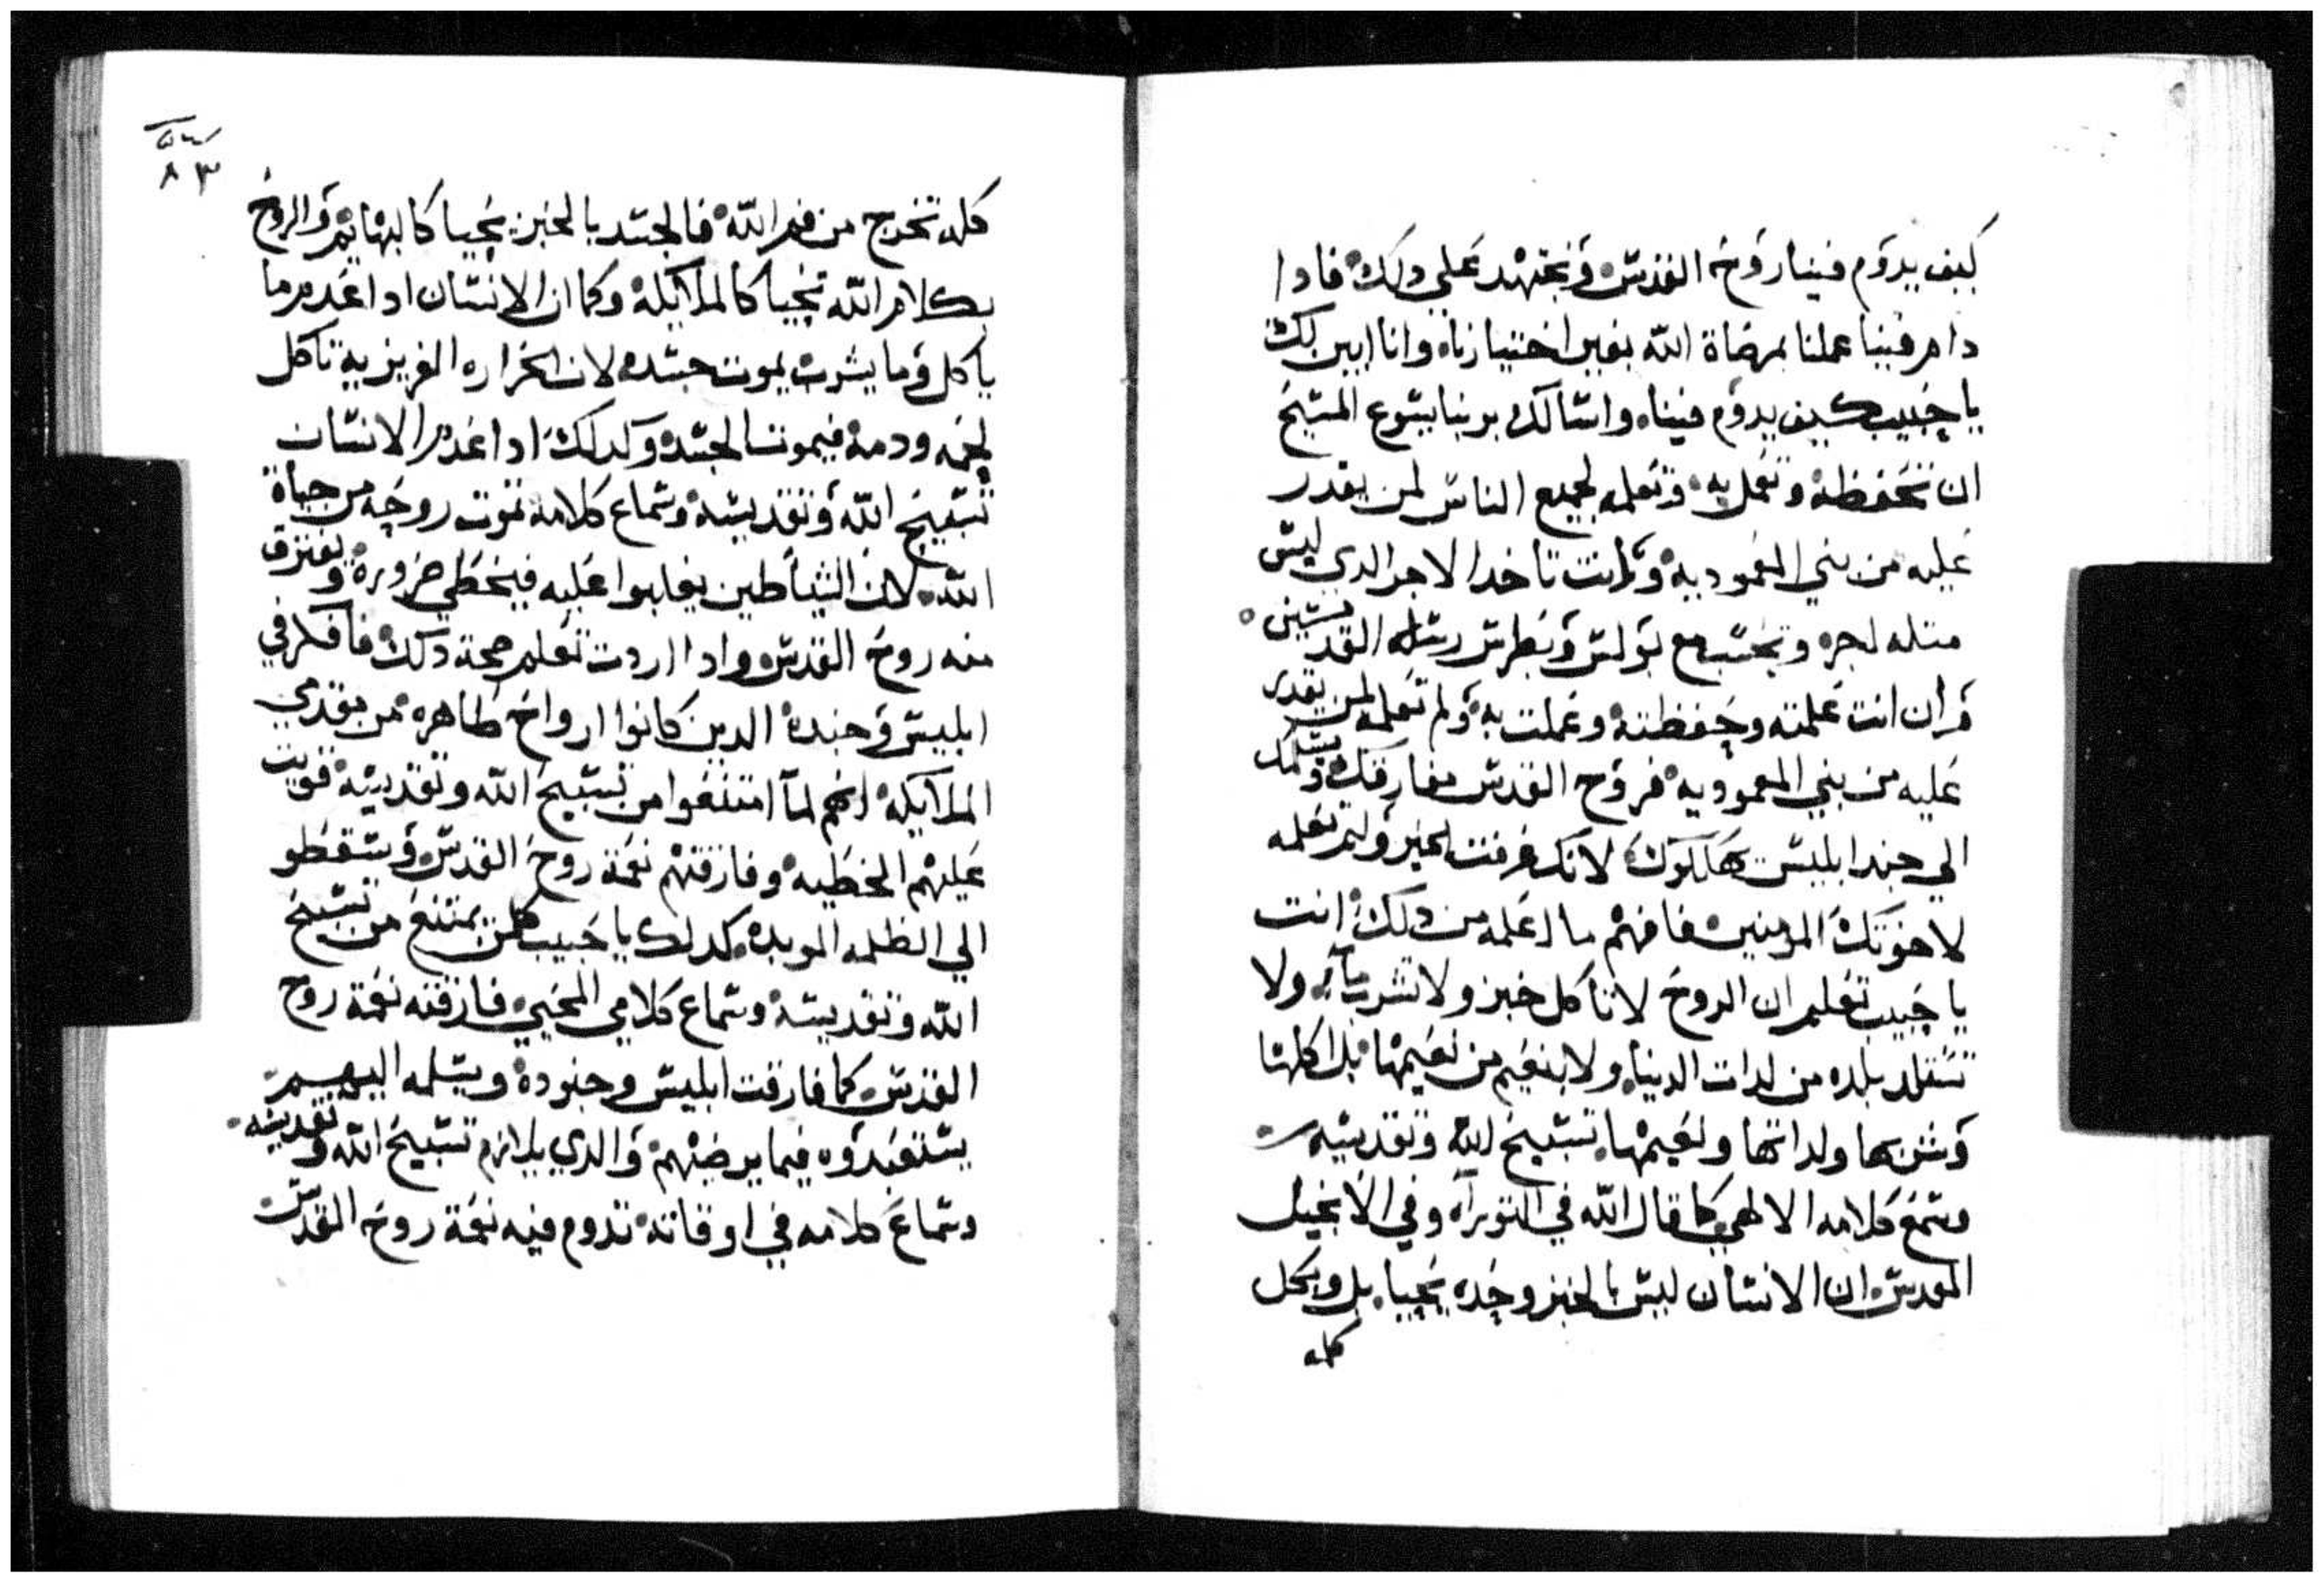 كيف يدوم فينا روح القدس ونجتهد علي دلك فادا
دام فينا عملنا بمرضاة الله بغير اختيارنا وانا ابين لك
يا حبيب كيف يدوم فينا واسالك بربنا يسوع المسيح
ان تحفظه وتعمل به وتعلمه لجميع الناس لمن يقدر
عليه من بني المعموديه وانت تاخد الاجر الدي ليس
متله اجر وتحسب مع بولس وبطرس رسله القديسين
وان انت علمته وحفظته وعملت به ولم تعلمه لمن يقدر
عليه من بني المعموديه فروح القدس مفارقك وتسلمك
الي جند ابليس يهلكوك لانك عرفت الخير ولم تعلمه
لاخوتك المومنين فافهم ما اعلمه من دلك انت
يا حبيب تعلم ان الروح لا تاكل خبز ولا تشرب ماء ولا
تستلد بلده من لدات الدنيا ولا بنعيم من نعيمها بل اكلها
وشربها ولداتها ونعيمها تسبيح الله وتقديسه
وسمع كلامه الالهي كما قال الله في التوراه وفي الانجيل
المقدس ان الانسان ليس بالخبز وحده يحيا بل وبكل
كلمه
٨٣
كلمه تخرج من فم الله فالجسد بالخبز يحيا كالبهايم والروح
بكلام الله تحيا كالملايكه وكما ان الانسان ادا عدم ما
ياكل وما يشرب يموت جسده لان الحراره الغريزيه تاكل
لحمه ودمه فيموت الجسد وكدلك ادا عدم الانسان
تسبيح الله وتقديسه وسماع كلامه تموت روحه من حياة
الله لان الشياطين يغلبوا عليه فيخطي ضروره ويفترق
منه روح القدس وادا اردت تعلم صحة دلك فافكر في
ابليس وجنده الدين كانوا ارواح طاهره من مقدمي
الملايكه انهم لما امتنعوا من تسبيح الله وتقديسه قويت
عليهم الخطيه وفارقتهم نعمة روح القدس وسقطو
الي الظلمه الموبده كدلك يا حبيب كلمن يمتنع من تسبيح
الله وتقديسه وسماع كلامي المحيي فارقته نعمة روح
القدس كما فارقت ابليس وجنوده ويسلمه اليهم
يستعبدوه فيما يرضيهم والدي يلازم تسبيح الله وتقديسه
وسماع كلامه في اوقاته تدوم فيه نعمة روح القدس